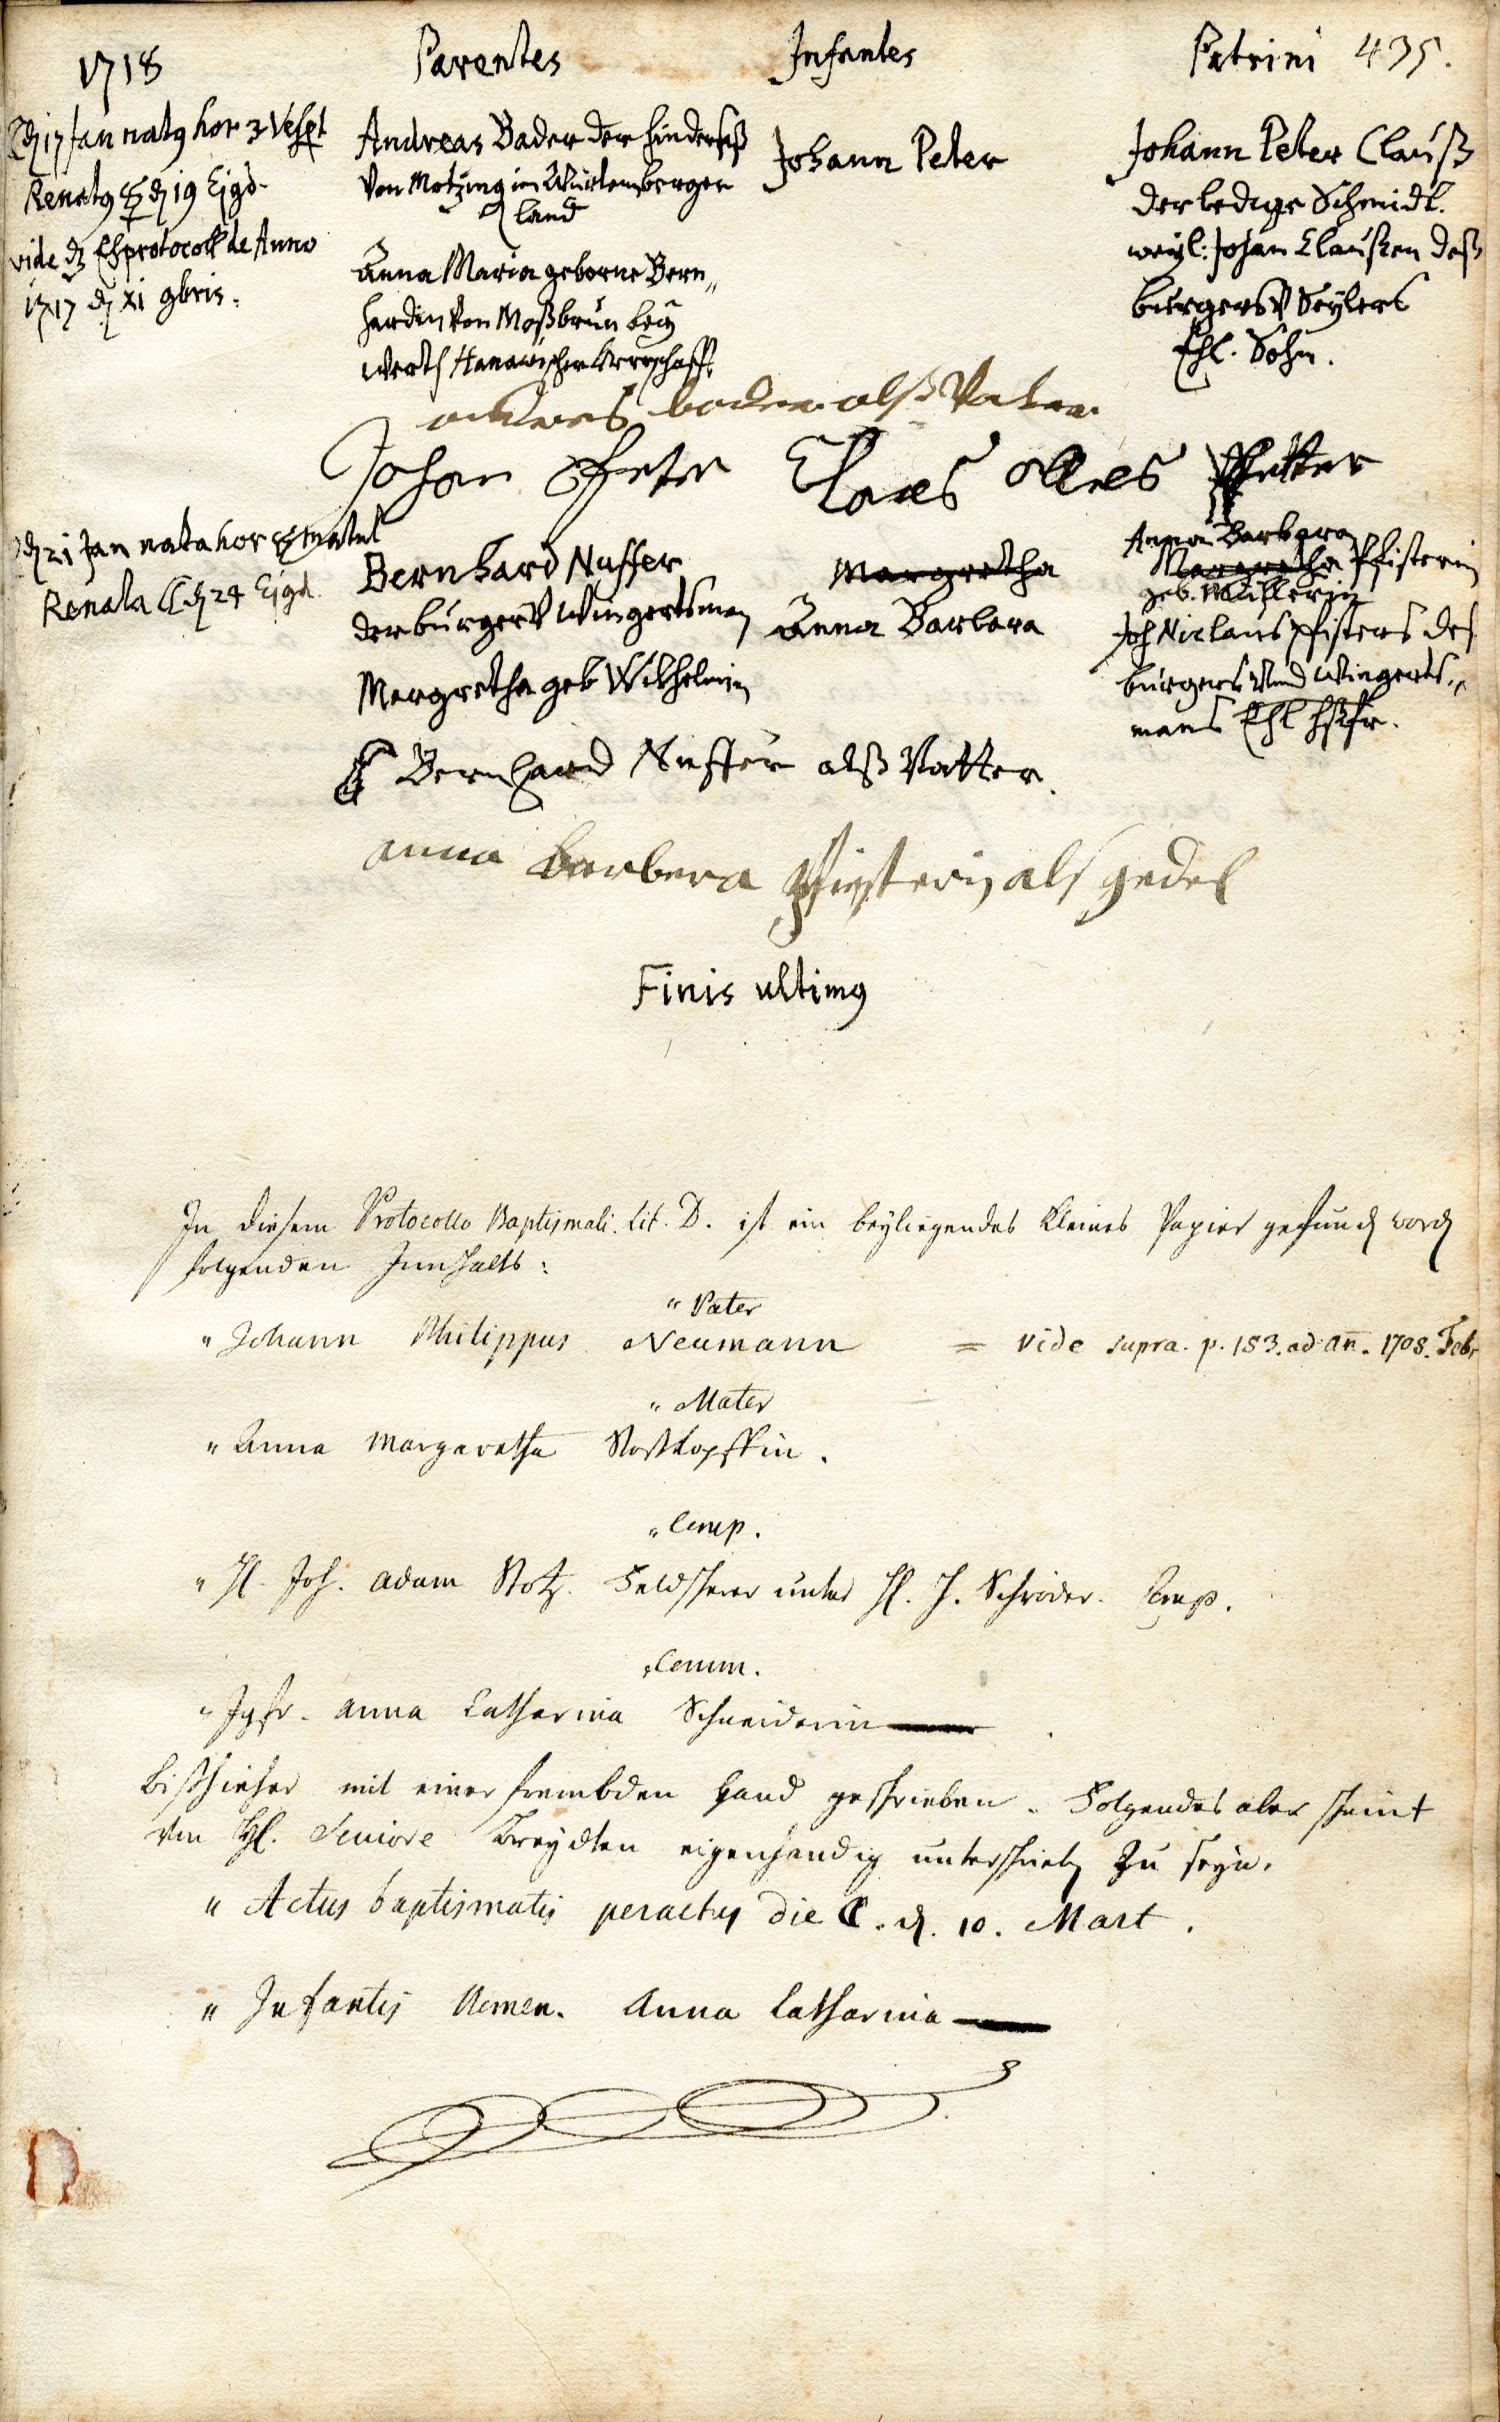 1718 Parentes Infantes Patrini 435.
17 Jan natg hor 3 Vesp̱t
Renatg 19 Ejgd.
vide Ehprotocoll de Anno
1717 XI 9bris.
Andreas Bader der Hindersaß
von Motzing im Würtemberger
land
Anna Maria geborne Bern„
hardin von Moßbrun bey
werth Hanawischer
Johann Peter
Johann Peter Clauß
der ledige Schmidt.
weyl: Johan Claußen deß
bürgers V Seylers
Ehl. Sohn.
andreas bader alß Vater
Johan Peter Claus alles Pfetter
21 Jan nata hor matut
Renata 24 Ejgd.
Bernhard Nuffer
der bürger V Wingertsman
Margretha geb Wilhelmin
Margretha
Anna Barbara
Anna Barbara
Margretha Pfisterin
geb. Müllerin
Joh Niclaus Pfisters des
bürgers Und Wingerts„
mans Ehl hßfr.
Bernhard Nuffer alß Vatter.
anna barbera Pfisterin als gedel
Finis ultimg
In diesem Protocollo Baptismali. Lit. D. ist ein beyliegendes kleines Papier gefund word
folgenden Innhalts:
" Pater
" Johann Philippus Neumann = vide supra. p. 183. ad añ. 1708. Febr
" Mater
" Anna Margaretha Roßkopffin.
" Comp.
" H. Joh. Adam Stotz. Feldscherer unter H. H. Schröder. Comp.
" Comm.
" Jgfr. Anna Catharina Schneiderin
bißhieher mit einer frembden Hand geschrieben. Folgendes aber scheint
von H. Seniore eigenhändig unterschrieb zu seyn.
" Actus baptismatis peractus die ☾. d. 10. Mart.
" Infantis Nomen. Anna Catharina